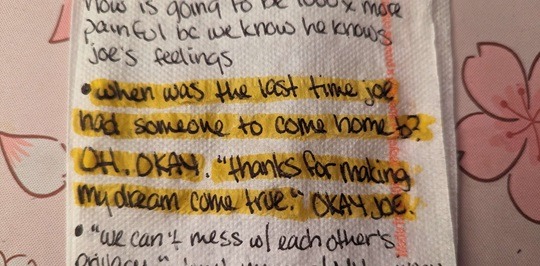 now is going to be 1000x more
painful bc we know he knows
joe's feelings
• when was the last time joe
had someone to come home to?
OH. OKAY. "thanks for making
my dream come true." OKAY JOE.
• "we can't mess w/ each other's
privacy"